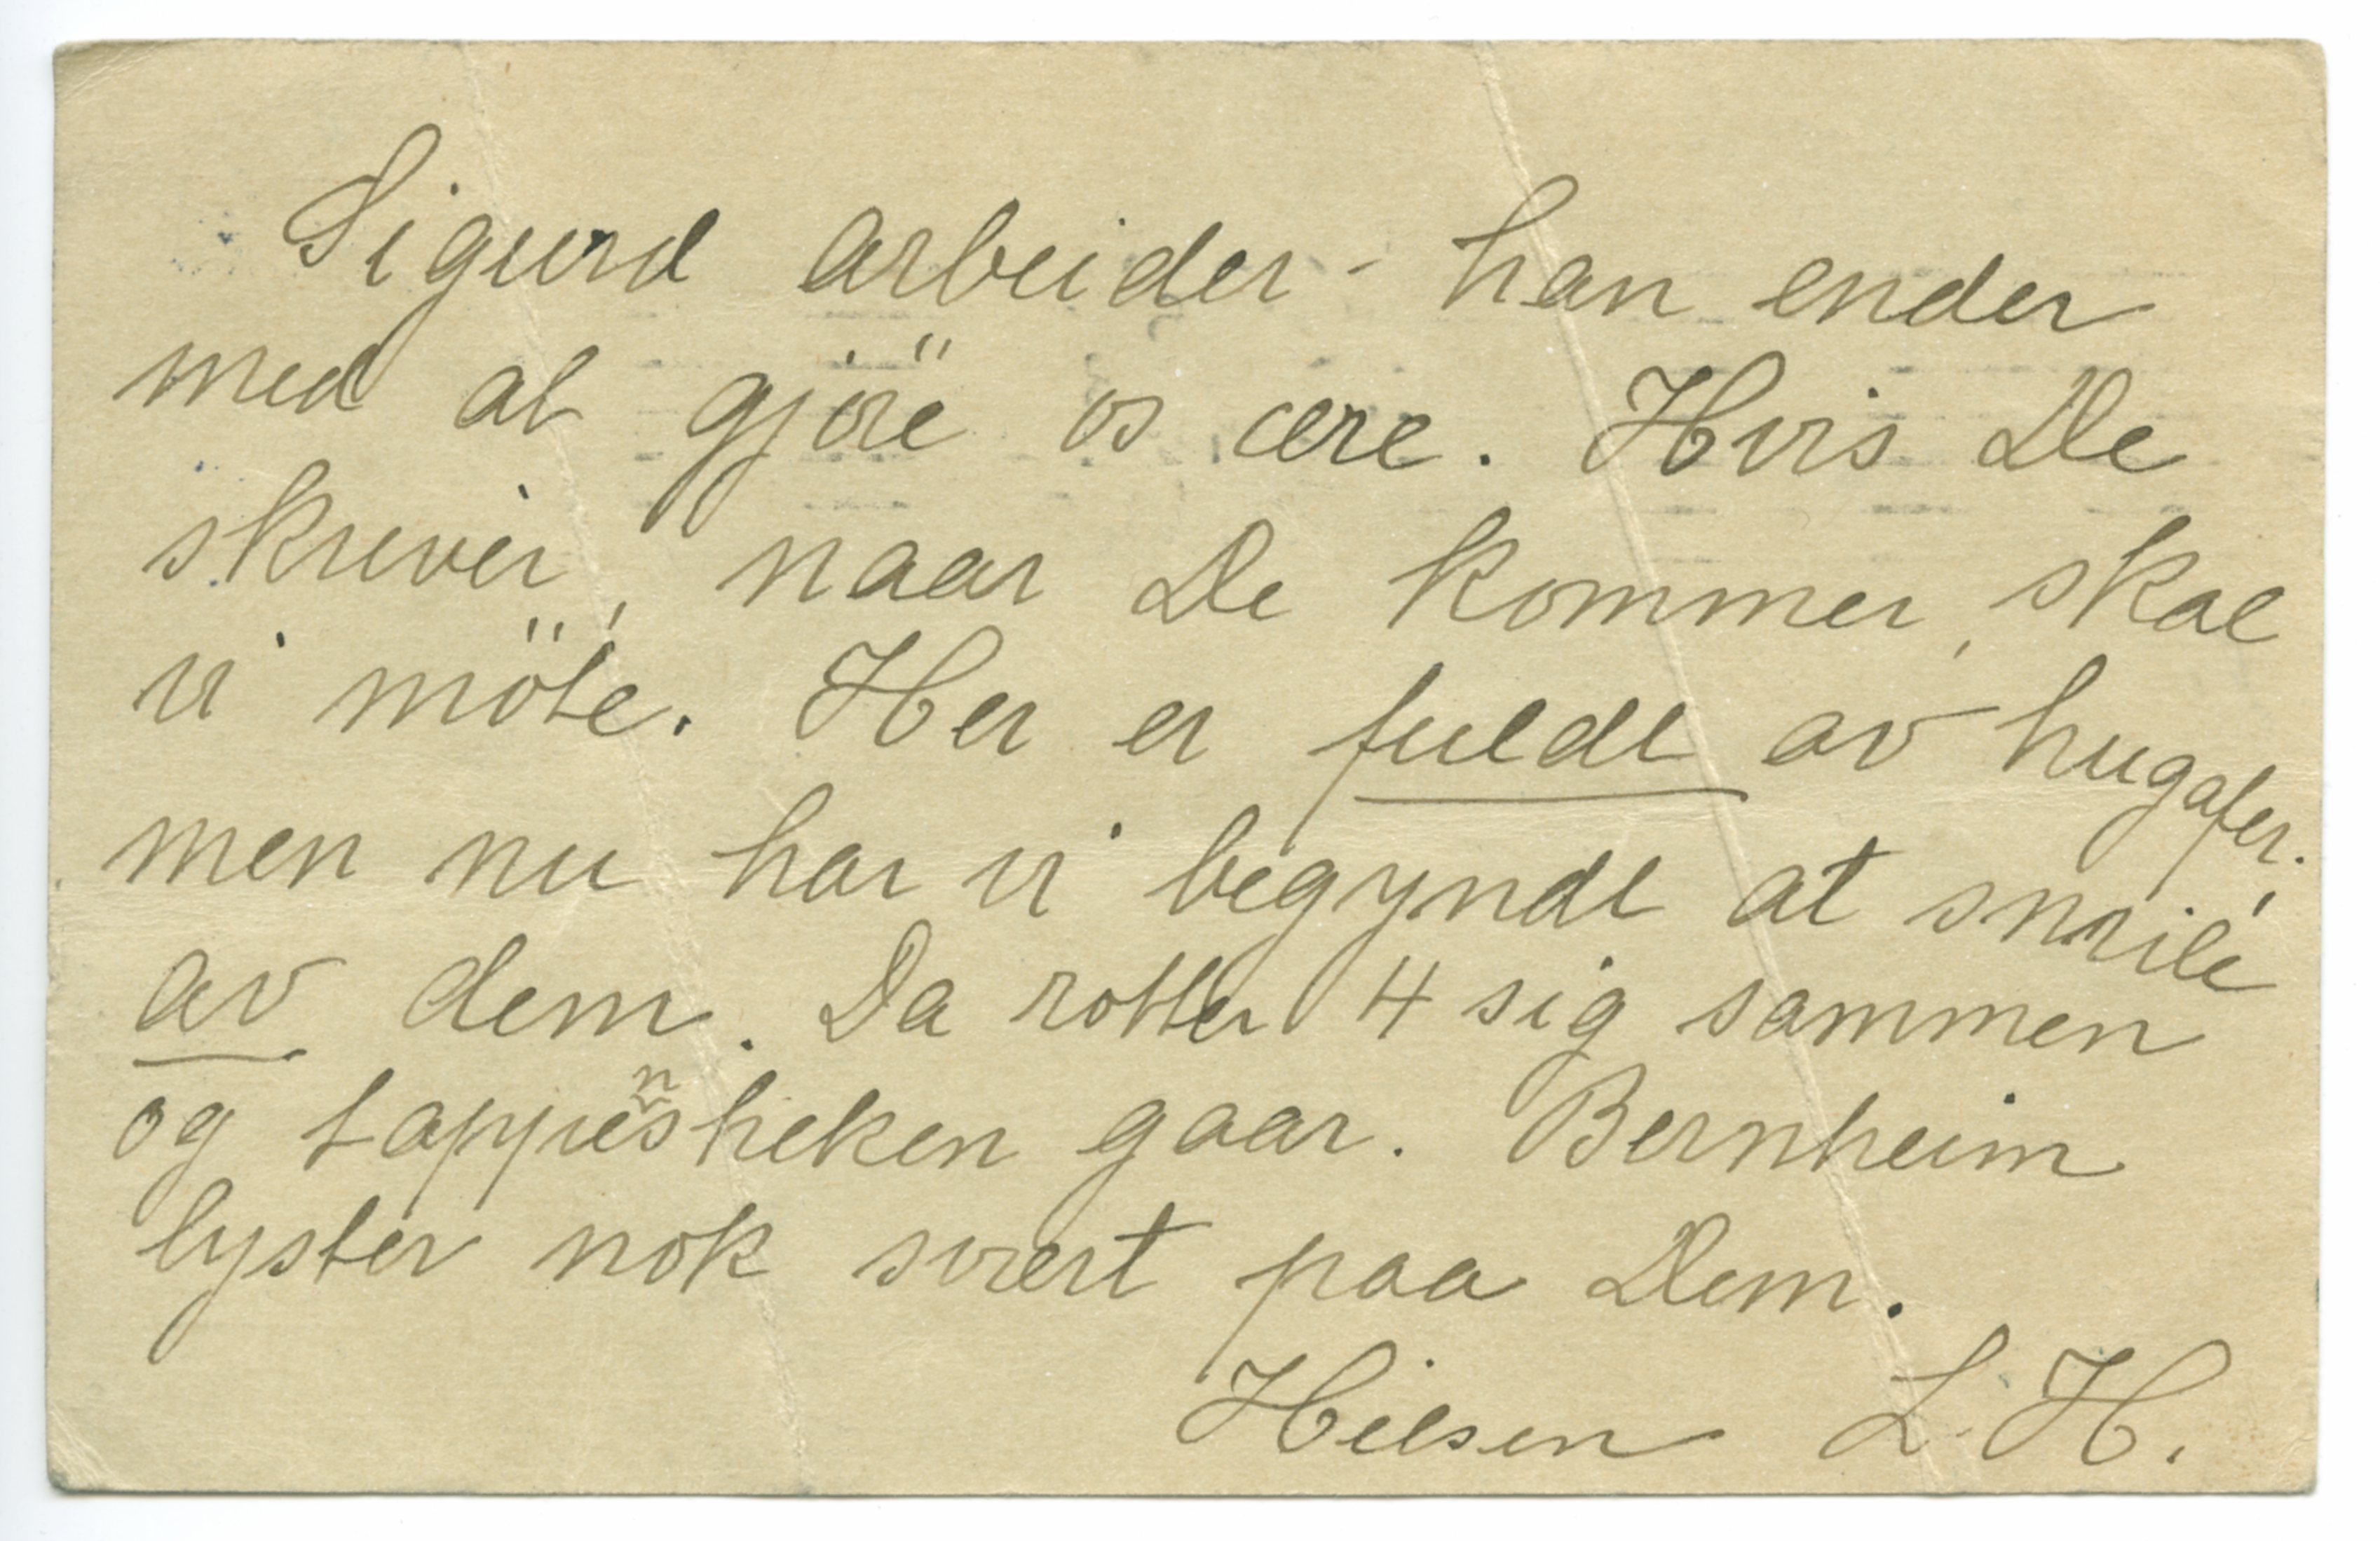 Sigurd arbeider - han ender
med at gjöre os ære. Hvis De
skriver, naar De kommer, skal
vi möte. Her er fuldt av hugafer.
men nu har vi begyndt at smile
av dem. Da rotter 4 sig sammen
og tappenstreken gaar. Bernheim
lyster nok svært paa Dem.
Hilsen L. H.